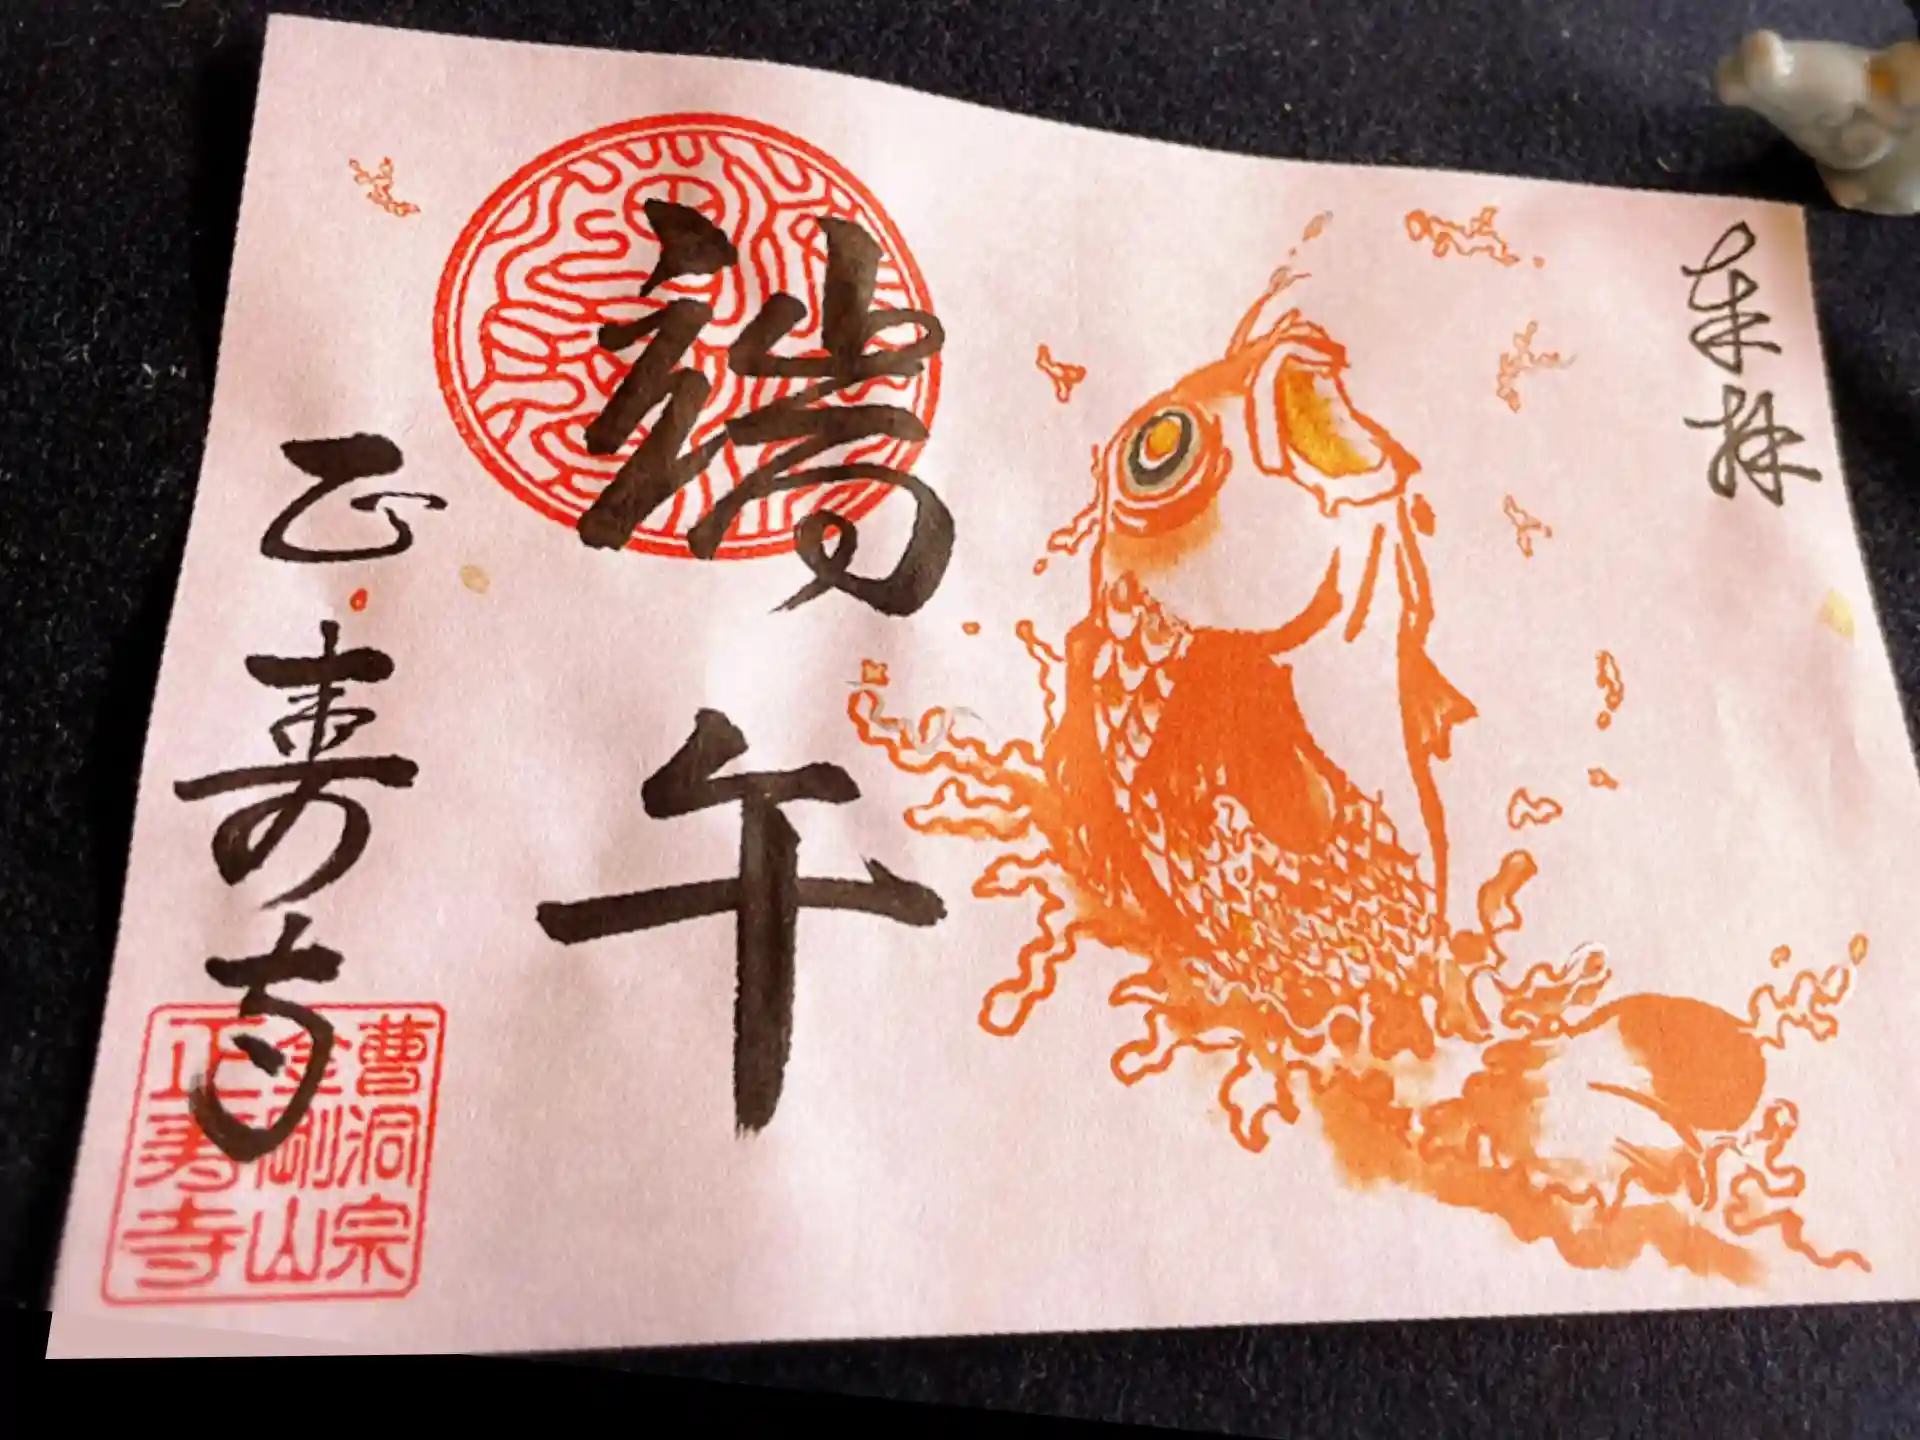 奉拝
端午
正寿寺
曹洞宗
金剛山
正寿寺